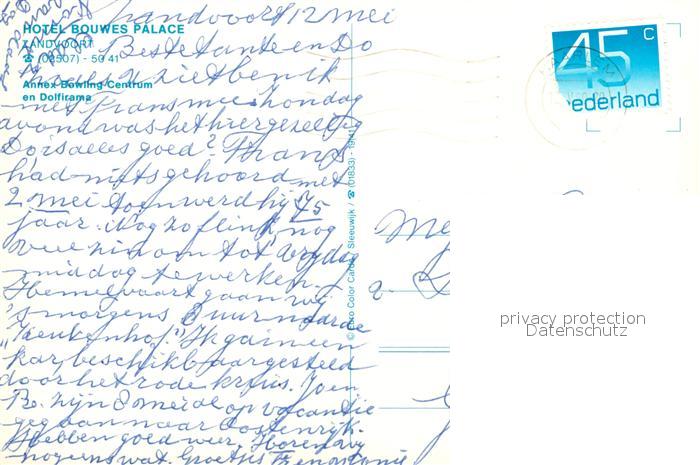 Zandvoort 12 mei
HOTEL BOUWES PALACE
ZANDVOORT
☎ (02507) - 50 41
Annex Bowling-Centrum
en Dolfirama
Beste tante en Do
zoals u ziet ben ik
met Frans mee zondag
avond was het hier gezellig
Do is alles goed? Frans
had niets gehoord met
2 mei toen werd hij 45
jaar. Nog zo flink, nog
veel zin om tot vrijdag
middag te werken.
Hemelvaart gaan wij
's morgens 8 uur naar de
"Keukenhof". Ik ga in een
kar, beschikbaar gesteld
door het rode kruis. Jo en
Bo. zijn 8 mei de op vacantie
gegaan naar Oostenrijk.
Hebben goed weer. Horen wij
nog eens wat. Groetjes
© Euro Color Cards Sleeuwijk / ☎ (01833) -
45 c
nederland
privacy protection
Datenschutz